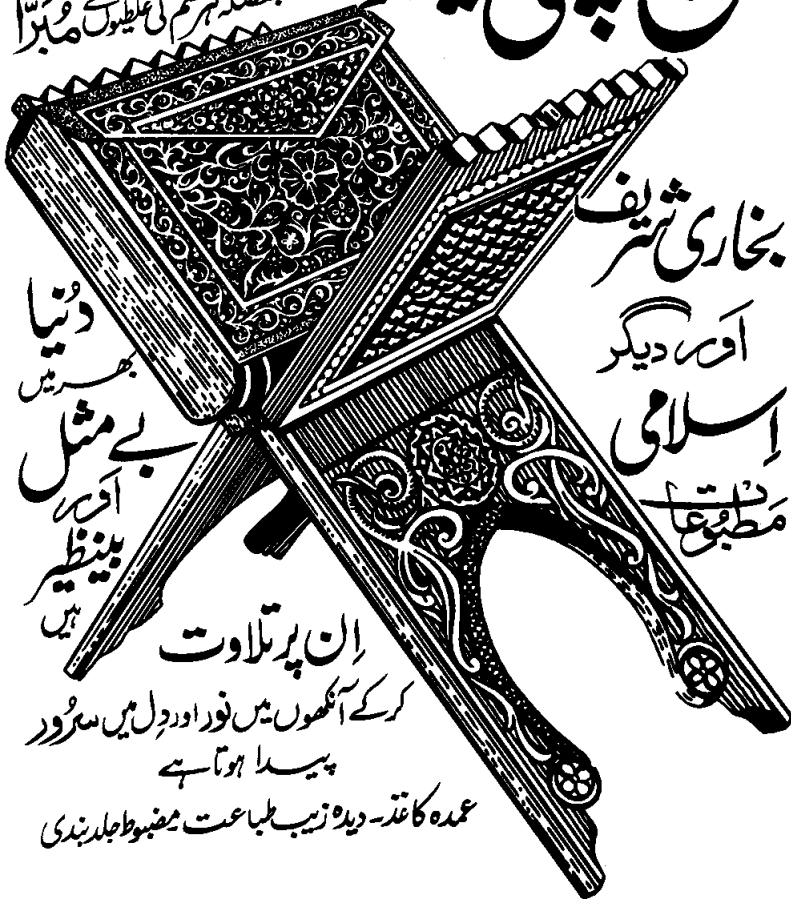 ہر قسم کی غلطیوں سے مُبرّا
بخاری شریف
اور دیگر
اِسلامی
مَطبُوعات
دُنیا
بھر میں
بے مثل
اور
بینظیر
ہیں
اِن پر تلاوت
کرکے آنکھوں میں نور اور دِل میں سرُور
پیدا ہوتا ہے
عمدہ کاغذ۔ دیدہ زیب طباعت مضبوط جلد بندی